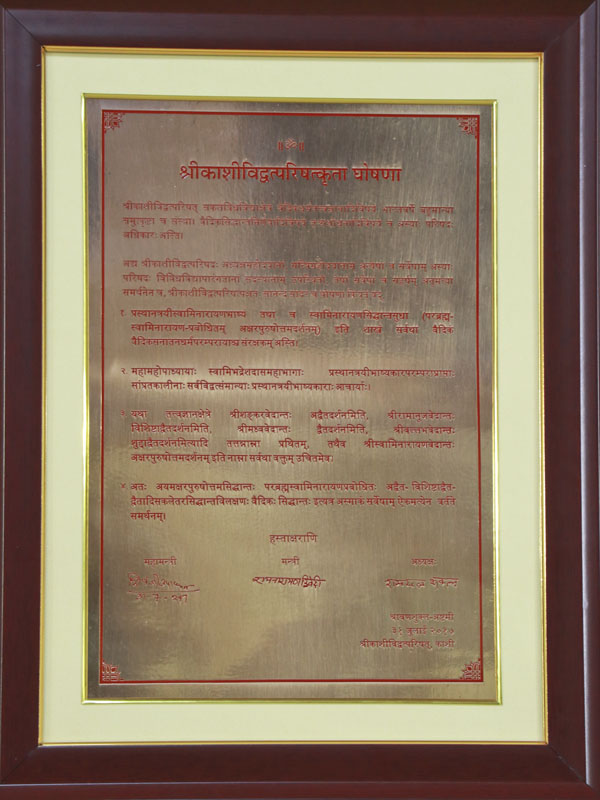 ॥ॐ॥
श्रीकाशीविद्वत्परिषत्कृता घोषणा
श्रीकाशीविद्वत्परिषद्
च संस्था। वैदिकसिद्धान्त
अधिकारः अस्ति।
अद्य श्रीकाशीविद्वत्परिषदः सर्वेषाम् अस्याः
परिषदः
समर्थनेन च, श्रीकाशीविद्वत्परिषत्पक्षतः
१. प्रस्थानत्रयीस्वामिनारायणभाष्यं तथा च स्वामिनारायणसिद्धान्तसुधा (परब्रह्म-
स्वामिनारायण-प्रबोधितम् अक्षरपुरुषोत्तमदर्शनम्) इति शास्त्रं सर्वथा वैदिकं
वैदिकसनातनधर्मपरम्परायाश्च संरक्षकम् अस्ति।
२. महामहोपाध्यायाः स्वामिभद्रेशदासमहाभागाः प्रस्थानत्रयीभाष्यकारपरम्पराप्राप्ताः
सांप्रतकालीनाः सर्वविद्वत्संमान्याः प्रस्थानत्रयीभाष्यकाराः आचार्याः।
३. यथा तत्त्वज्ञानक्षेत्रे श्रीशङ्करवेदान्तः अद्वैतदर्शनमिति, श्रीरामानुजवेदान्तः
विशिष्टाद्वैतदर्शनमिति, श्रीमध्ववेदान्तः द्वैतदर्शनमिति, श्रीवल्लभवेदान्तः
शुद्धाद्वैतदर्शनमित्यादि तत्तन्नाम्ना प्रथितम्, तथैव श्रीस्वामिनारायणवेदान्तः
अक्षरपुरुषोत्तमदर्शनम् इति नाम्ना सर्वथा वक्तुम् उचितमेव।
४. अतः अयमक्षरपुरुषोत्तमसिद्धान्तः परब्रह्मस्वामिनारायणप्रबोधितः अद्वैत-विशिष्टाद्वैत-
द्वैतादिसकलेतरसिद्धान्तविलक्षणः वैदिकः सिद्धान्तः इत्यत्र अस्माकं सर्वेषाम् ऐकमत्येन वर्तते
समर्थनम्।
हस्ताक्षराणि
महामन्त्री मन्त्री अध्यक्षः
श्रावणशुक्ल-अष्टमी
३१ जुलाई २०१७
श्रीकाशीविद्वत्परिषत्, काशी